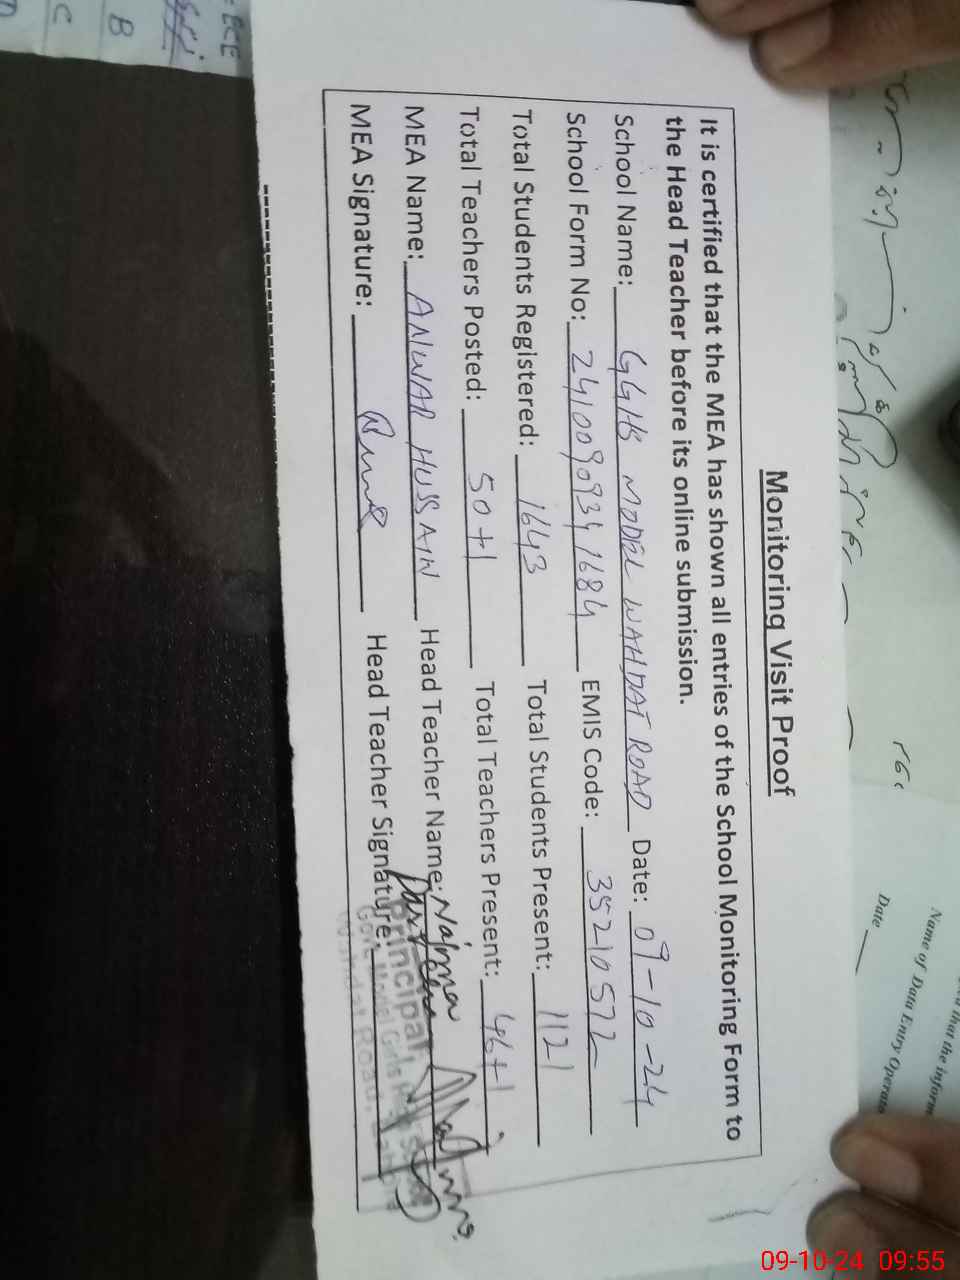 Monitoring Visit Proof
It is certified that the MEA has shown all entries of the School Monitoring Form to
the Head Teacher before its online submission.
School Name: GGHS MODEL WAHDAT ROAD Date: 09-10-24
School Form No: 24100909341684 EMIS Code: 35210572
Total Students Registered: 1643 Total Students Present: 1121
Total Teachers Posted: 50+1 Total Teachers Present: 46+1
MEA Name: ANWAR HUSSAIN Head Teacher Name: Naima
MEA Signature: Head Teacher Signature:
Principal
Govt. Model Girls
Wahdat Road,
Name of Data Entry Operato
Date
that the inform
ECE
B
C
09-10-24 09:55